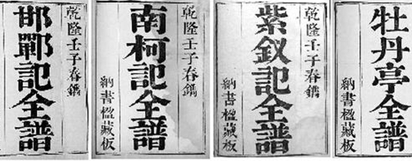 牡丹亭全譜
納書楹藏板
乾隆壬子春鐫
紫釵記全譜
納書楹藏板
乾隆壬子春鐫
南柯記全譜
納書楹藏板
乾隆壬子春鐫
邯鄲記全譜